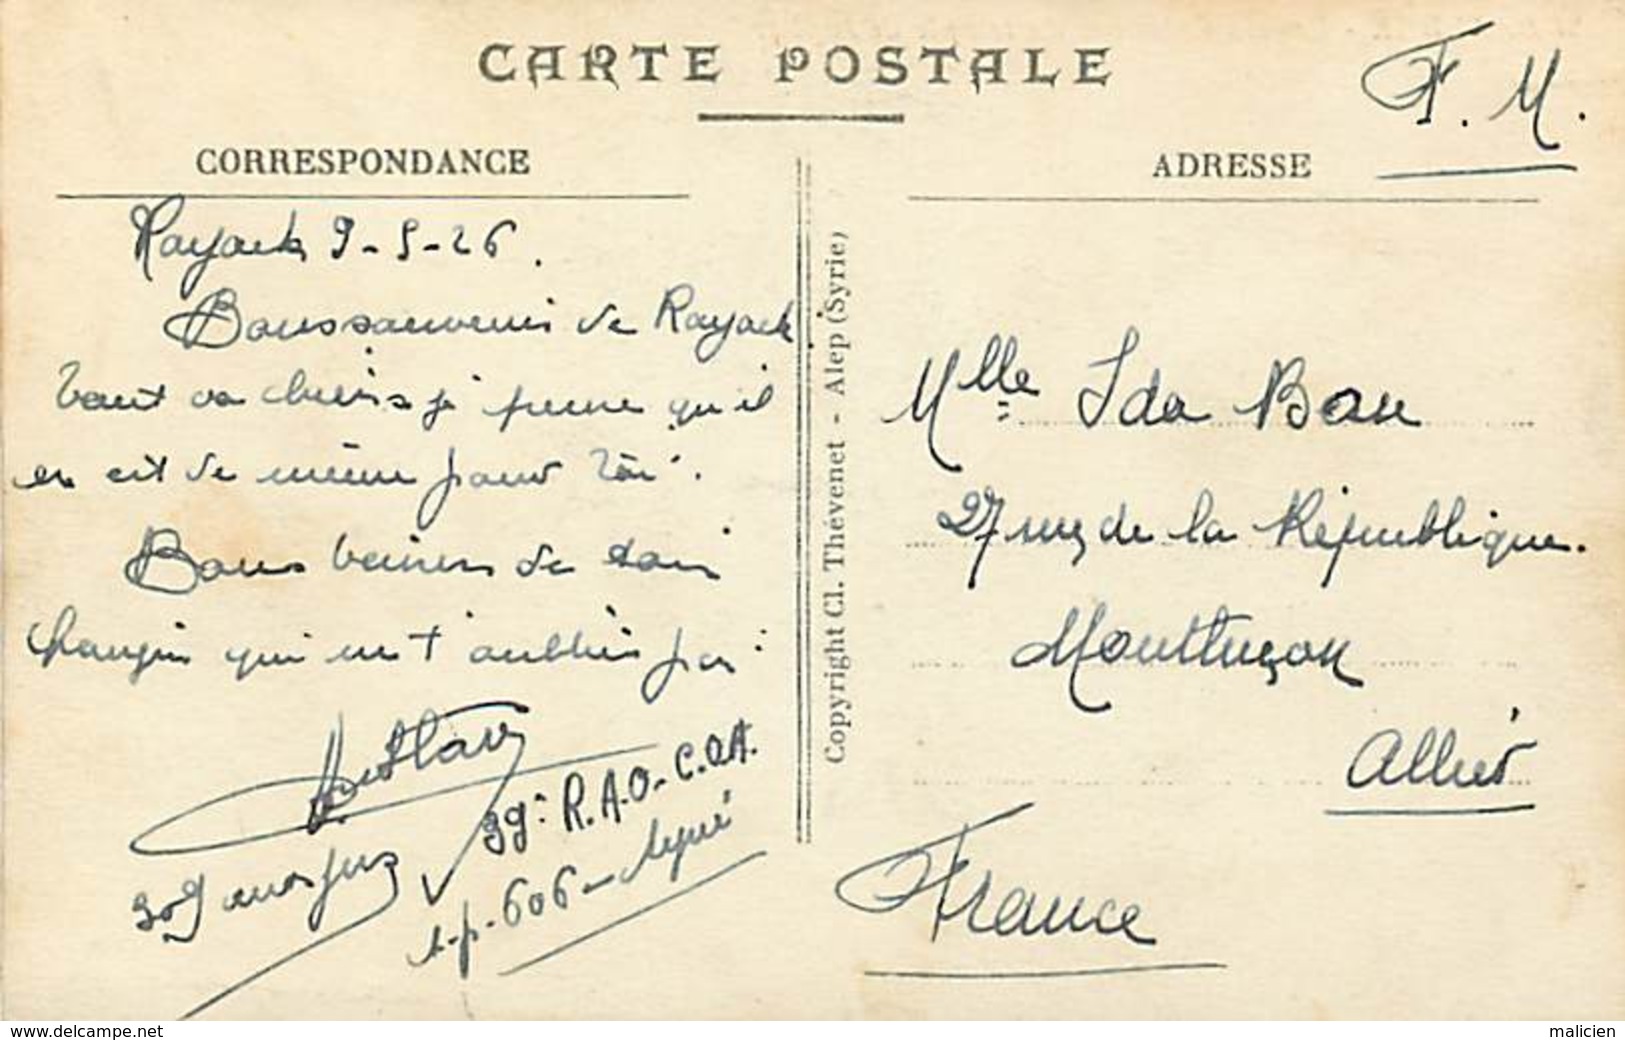 CARTE POSTALE
F. M.
CORRESPONDANCE
ADRESSE
Rayack 9-5-26.
Bons souvenirs de Rayack
tout va bien je pense qu'il
en est de même pour toi.
Bons baisers de ton
qui ne t'oublies pas
39e R.A.O-C.O.A.
s-p-606-
Copyright Cl. Thévenet - Alep (Syrie)
Mlle Ida Bon
27 rue de la République.
Montluçon
Allier
France
www.delcampe.net
malicien